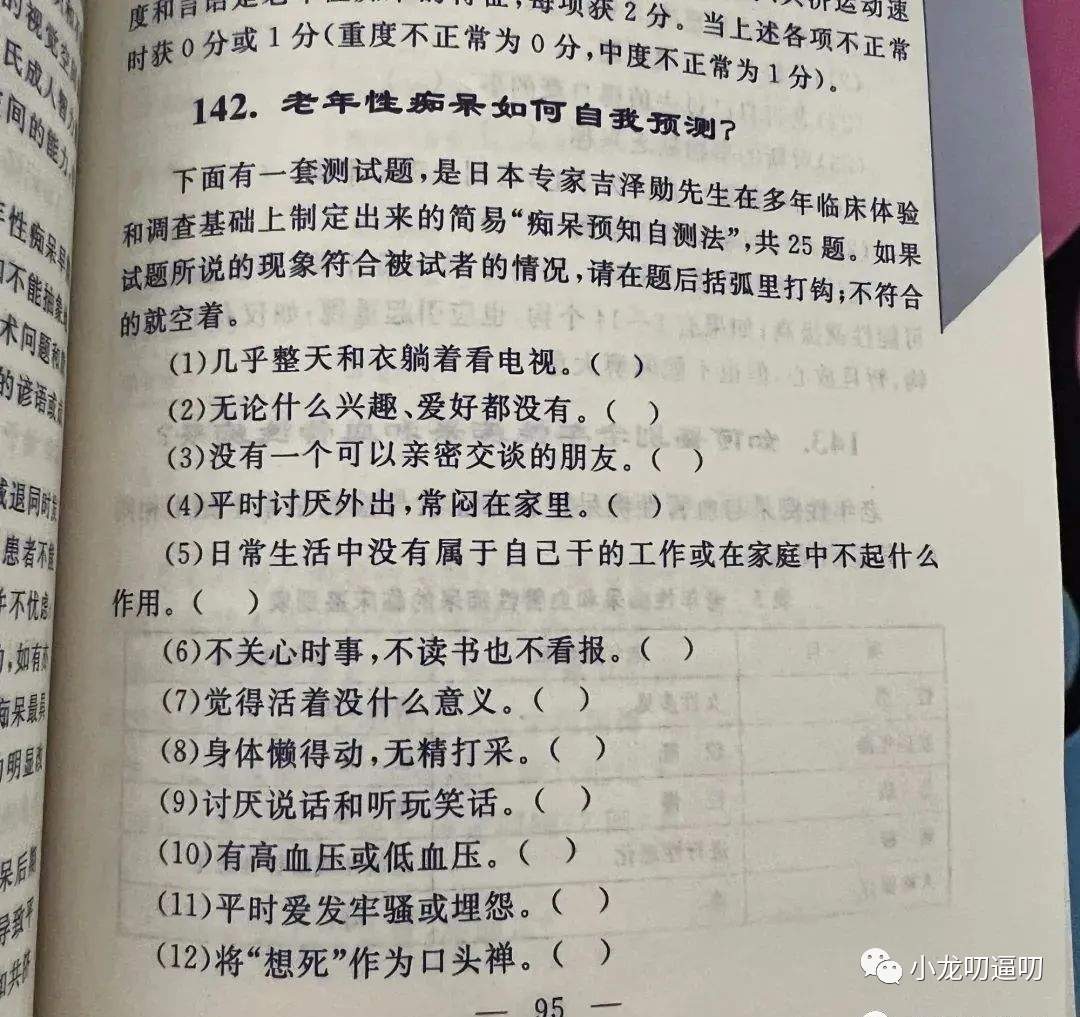 的视觉空
氏成人智力
间的能力,
年性痴呆早
和不能抽象
术问题和
的谚语或
减退同时
患者不能
并不忧虑
痴呆最具
呆后期
导致平
度和言语是老年性痴呆的特征,每项获2分。当上述各项不正常
时获0分或1分(重度不正常为0分,中度不正常为1分)。
142. 老年性痴呆如何自我预测?
下面有一套测试题,是日本专家吉泽勋先生在多年临床体验
和调查基础上制定出来的简易“痴呆预知自测法”,共25题。如果
试题所说的现象符合被试者的情况,请在题后括弧里打钩;不符合
的就空着。
(1)几乎整天和衣躺着看电视。( )
(2)无论什么兴趣、爱好都没有。( )
(3)没有一个可以亲密交谈的朋友。( )
(4)平时讨厌外出,常闷在家里。( )
(5)日常生活中没有属于自己干的工作或在家庭中不起什么
作用。( )
(6)不关心时事,不读书也不看报。( )
(7)觉得活着没什么意义。( )
(8)身体懒得动,无精打采。( )
(9)讨厌说话和听玩笑话。( )
(10)有高血压或低血压。( )
(11)平时爱发牢骚或埋怨。( )
(12)将“想死”作为口头禅。( )
— 95 —
小龙叨逼叨